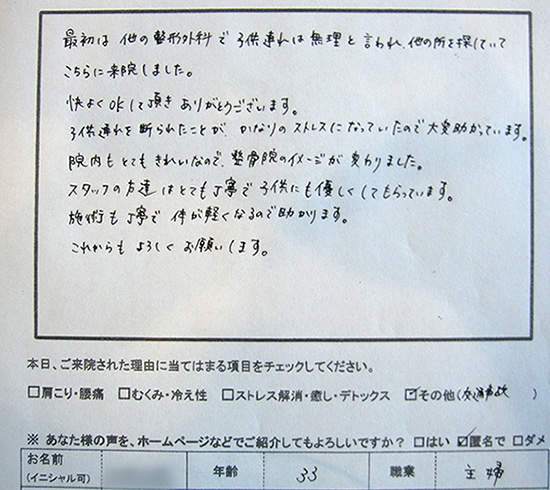 最初は他の整形外科で子供連れは無理と言われ、他の所を探していて
こちらに来院しました。
快よくOKして頂きありがとうございます。
子供連れを断られたことが、かなりのストレスになっていたので大変助かっています。
院内もとてもきれいなので、整骨院のイメージが変わりました。
スタッフの友達はとても丁寧で子供にも優しくしてもらっています。
施術も丁寧で体が軽くなるので助かります。
これからもよろしくお願いします。
本日、ご来院された理由に当てはまる項目をチェックしてください。
□肩こり・腰痛 □むくみ・冷え性 □ストレス解消・癒し・デトックス ☑その他(交通事故)
※ あなた様の声を、ホームページなどでご紹介してもよろしいですか? □はい ☑匿名で □ダメ
お名前 年齢 33 職業 主婦
(イニシャル可)